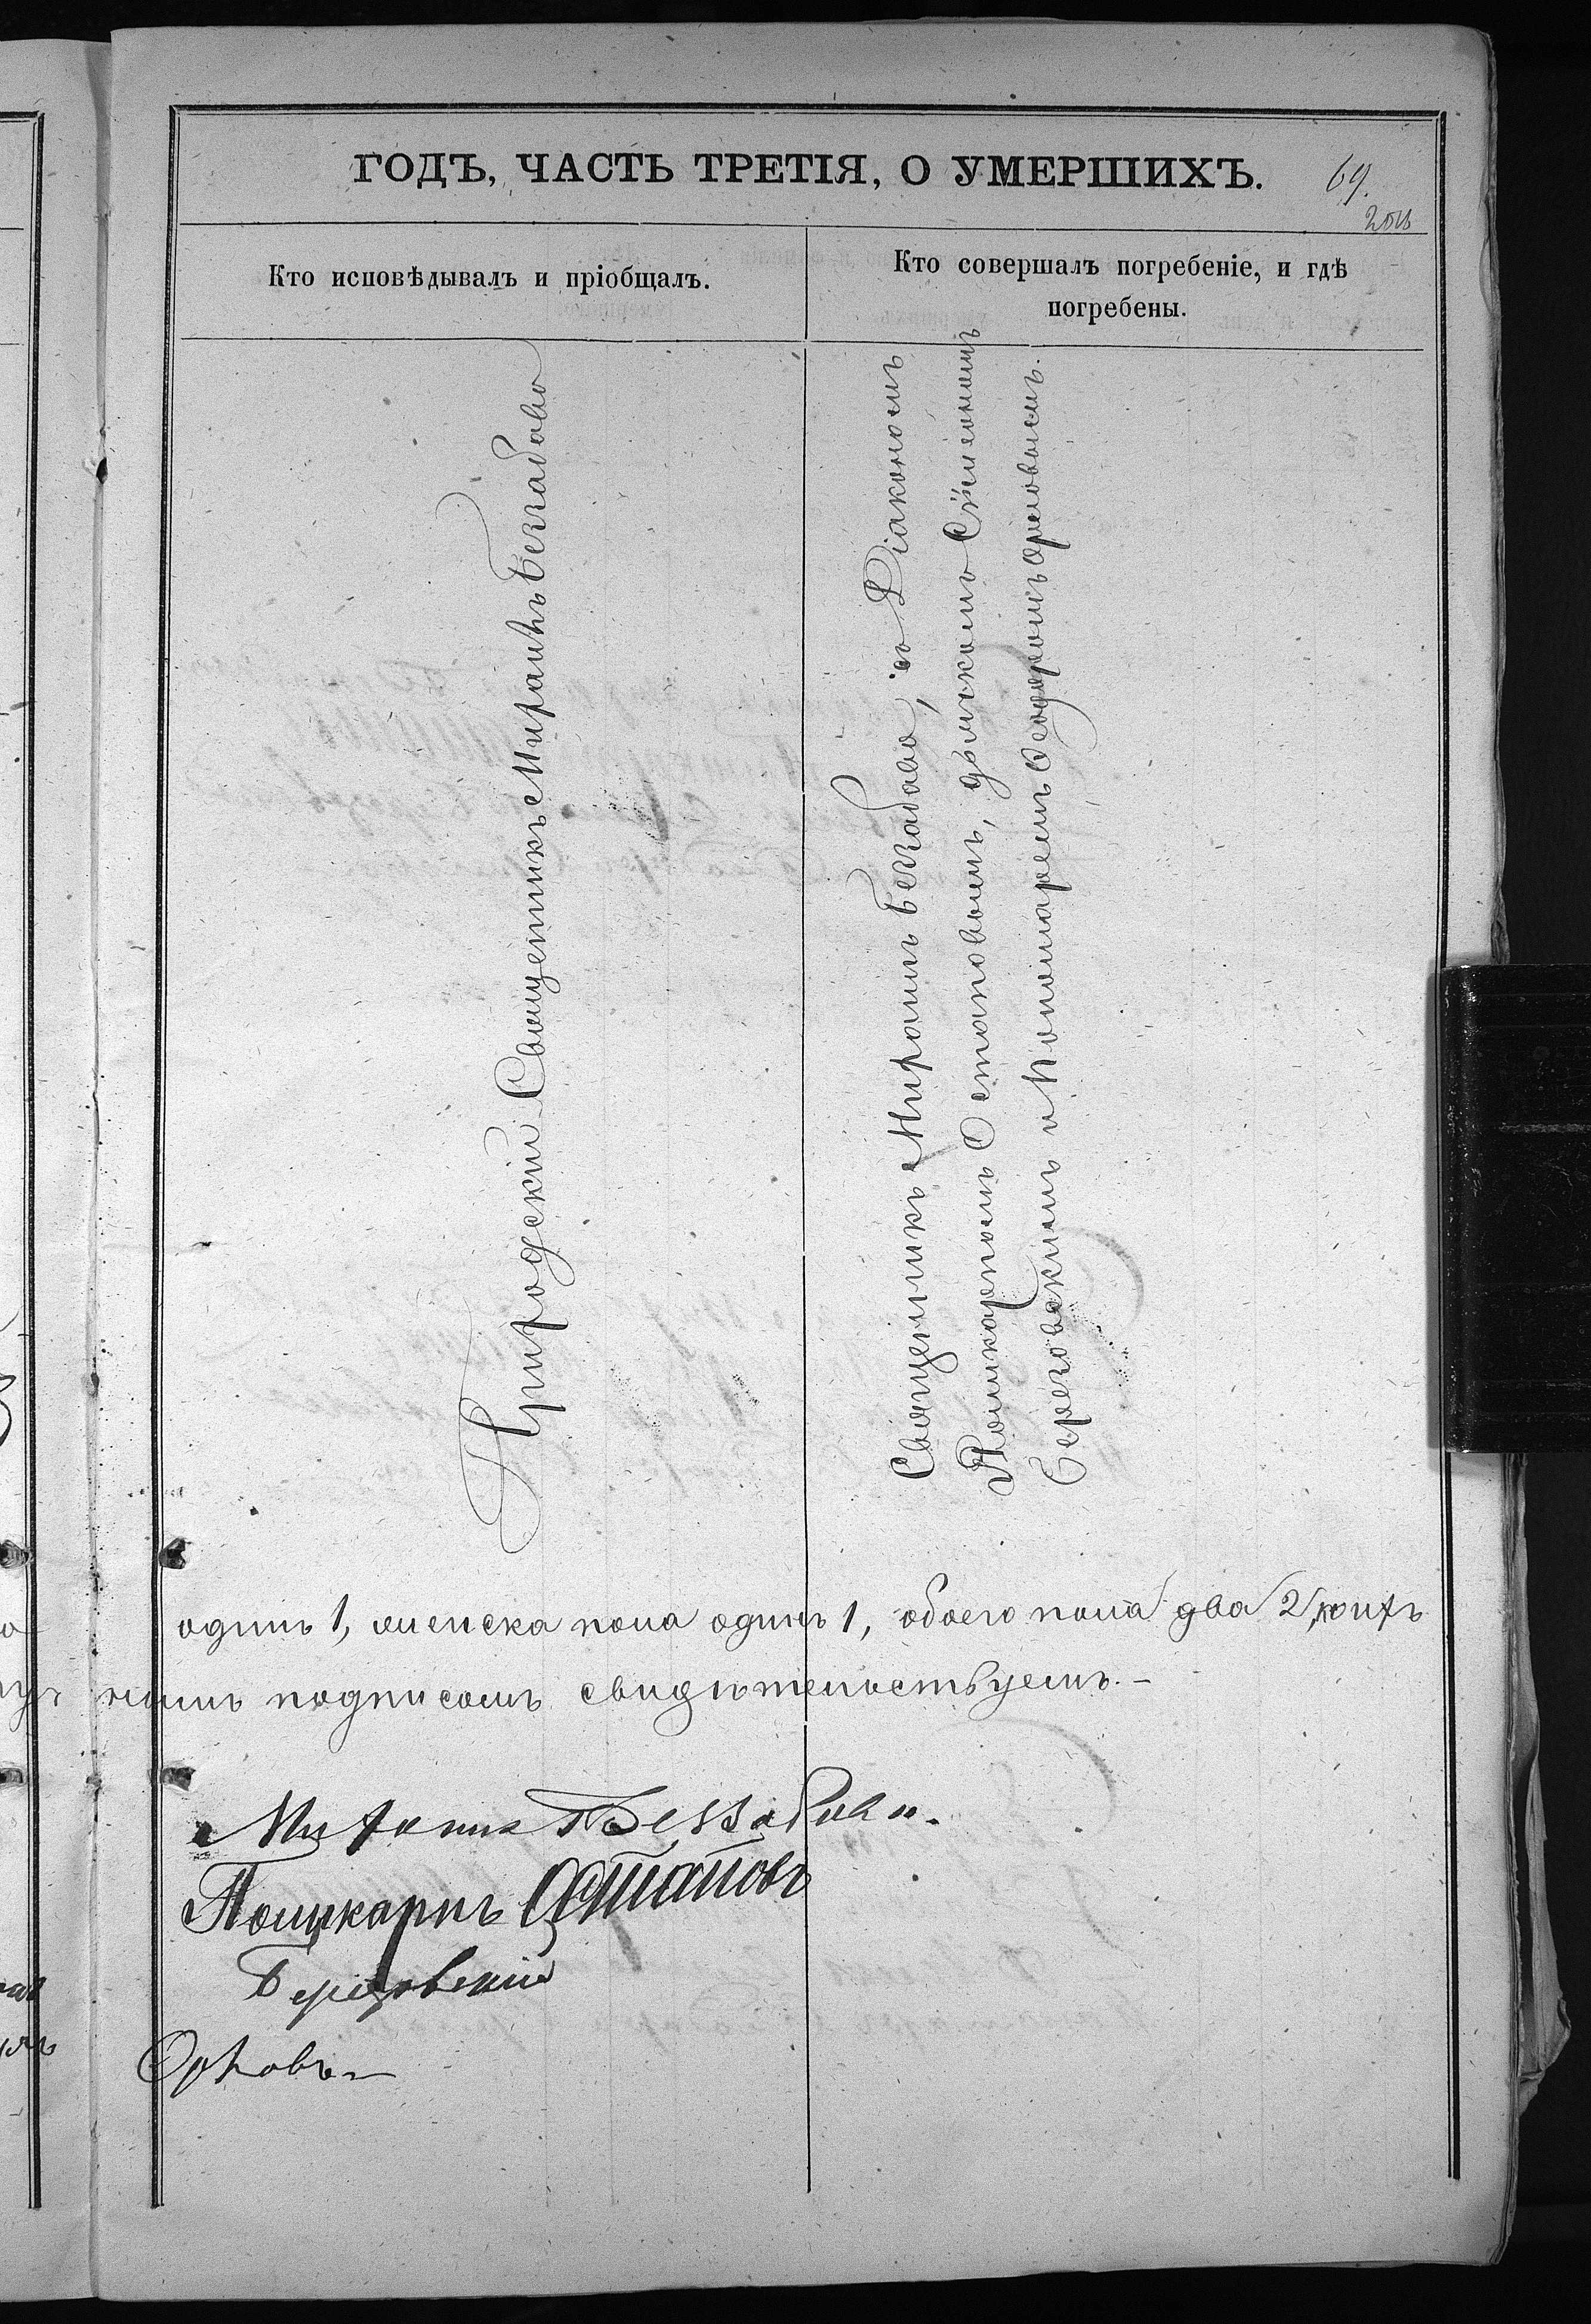 ГОДЪ, ЧАСТЬ ТРЕТІЯ, О УМЕРШИХЪ.
69.
Кто исповѣдывалъ и пріобщалъ.
Кто совершалъ погребеніе, и гдѣ
погребены.
Приходскій Священникъ Беззабава
Священникъ Беззабава, съ Діакономъ
Поликарпомъ Остаповымъ, дьячкомъ Сѵмеономъ
Березовскимъ и Пономаремъ Ѳеодоромъ Орловымъ.
одинъ 1, женска пола одинъ 1, обоего пола два 2,
нашъ подписомъ свидѣтельствуемъ. —
Беззабава.
Поликарпъ Остаповъ
Березовскій
Орловъ —